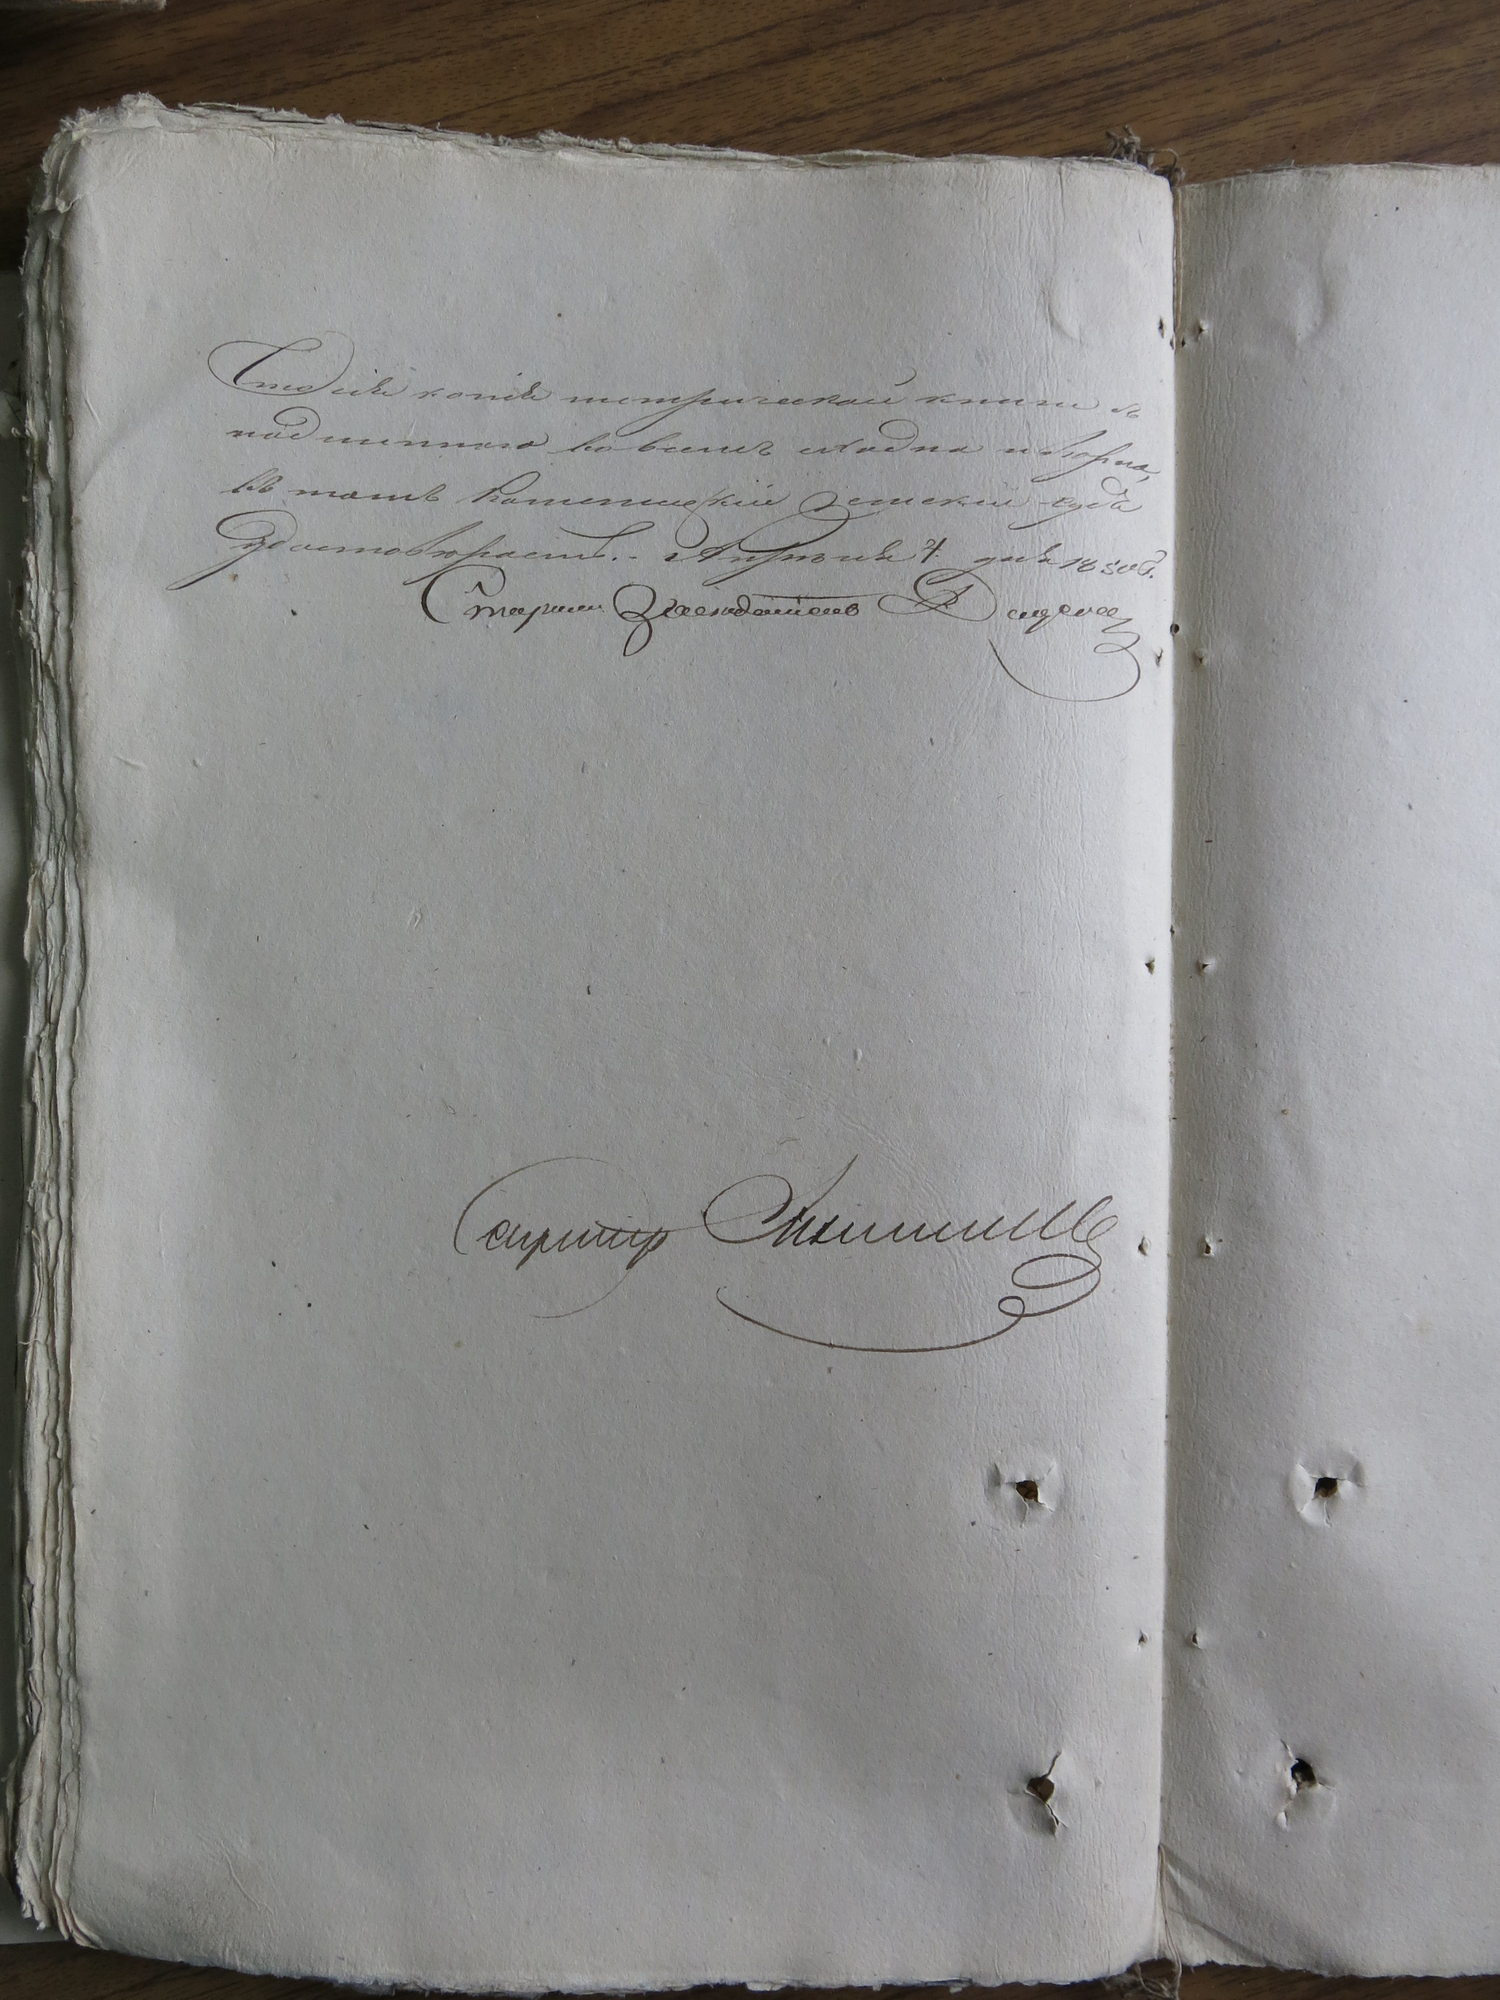 Что сія копія метрической книги съ
подлинною во всемъ сходна и вѣрна,
въ томъ Каменецкій Земскій Судъ
удостовѣряетъ. Апрѣля 4 дня 18
Старшій Засѣдатель
Секретарь